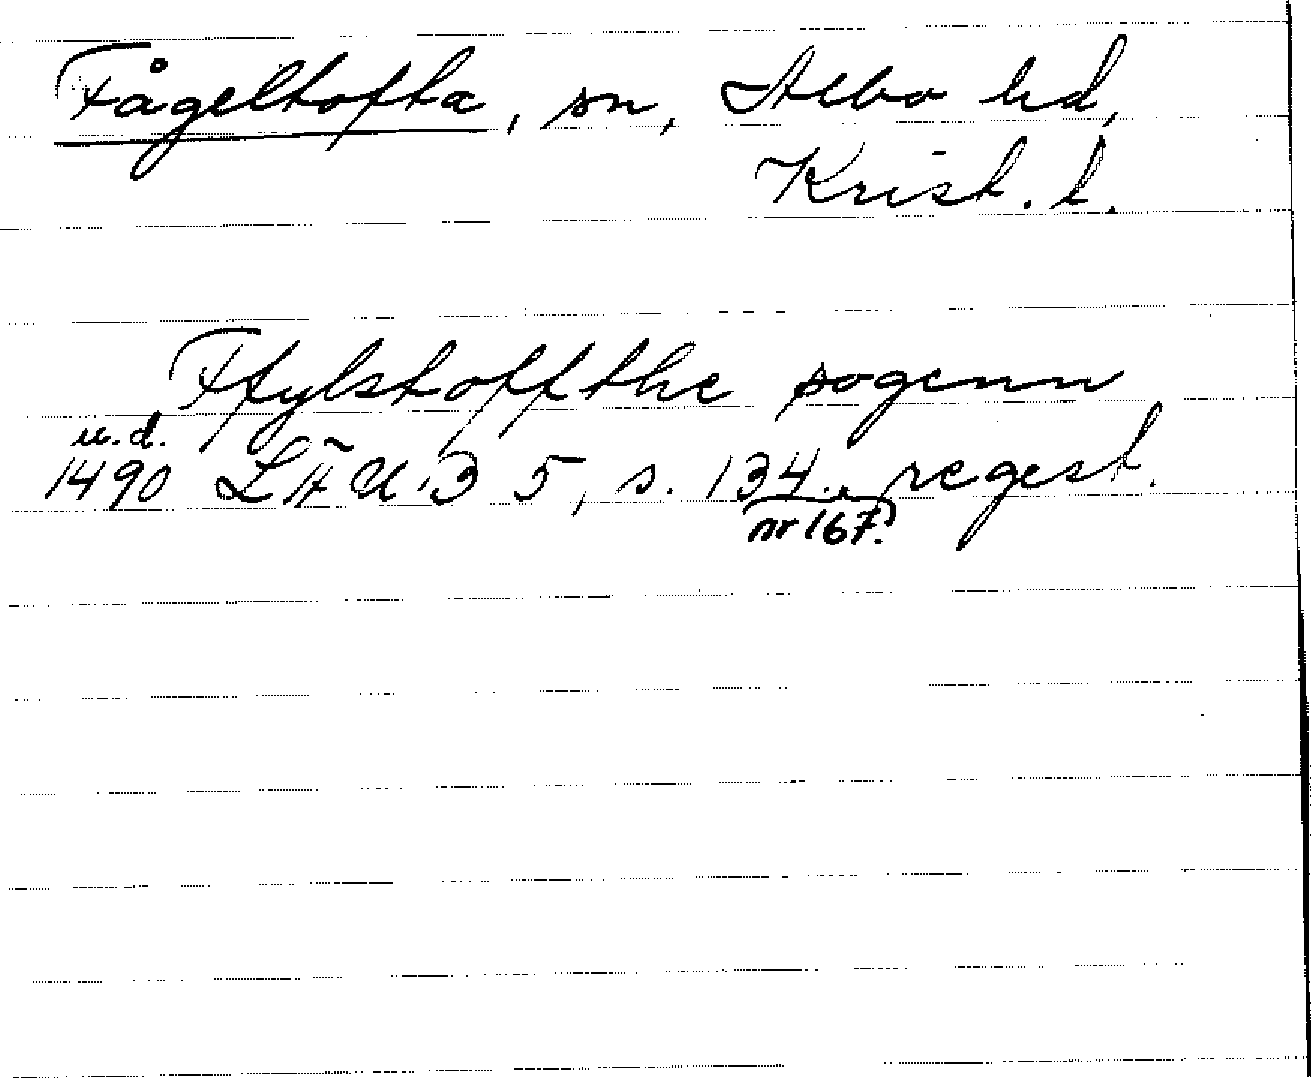 Fågeltofta, sn, Albo hd,
Krist. l.
Ffylstoffthe sogenn
u.d.
1490 LÄU 3 5, s. 134., regest.
nr 167.